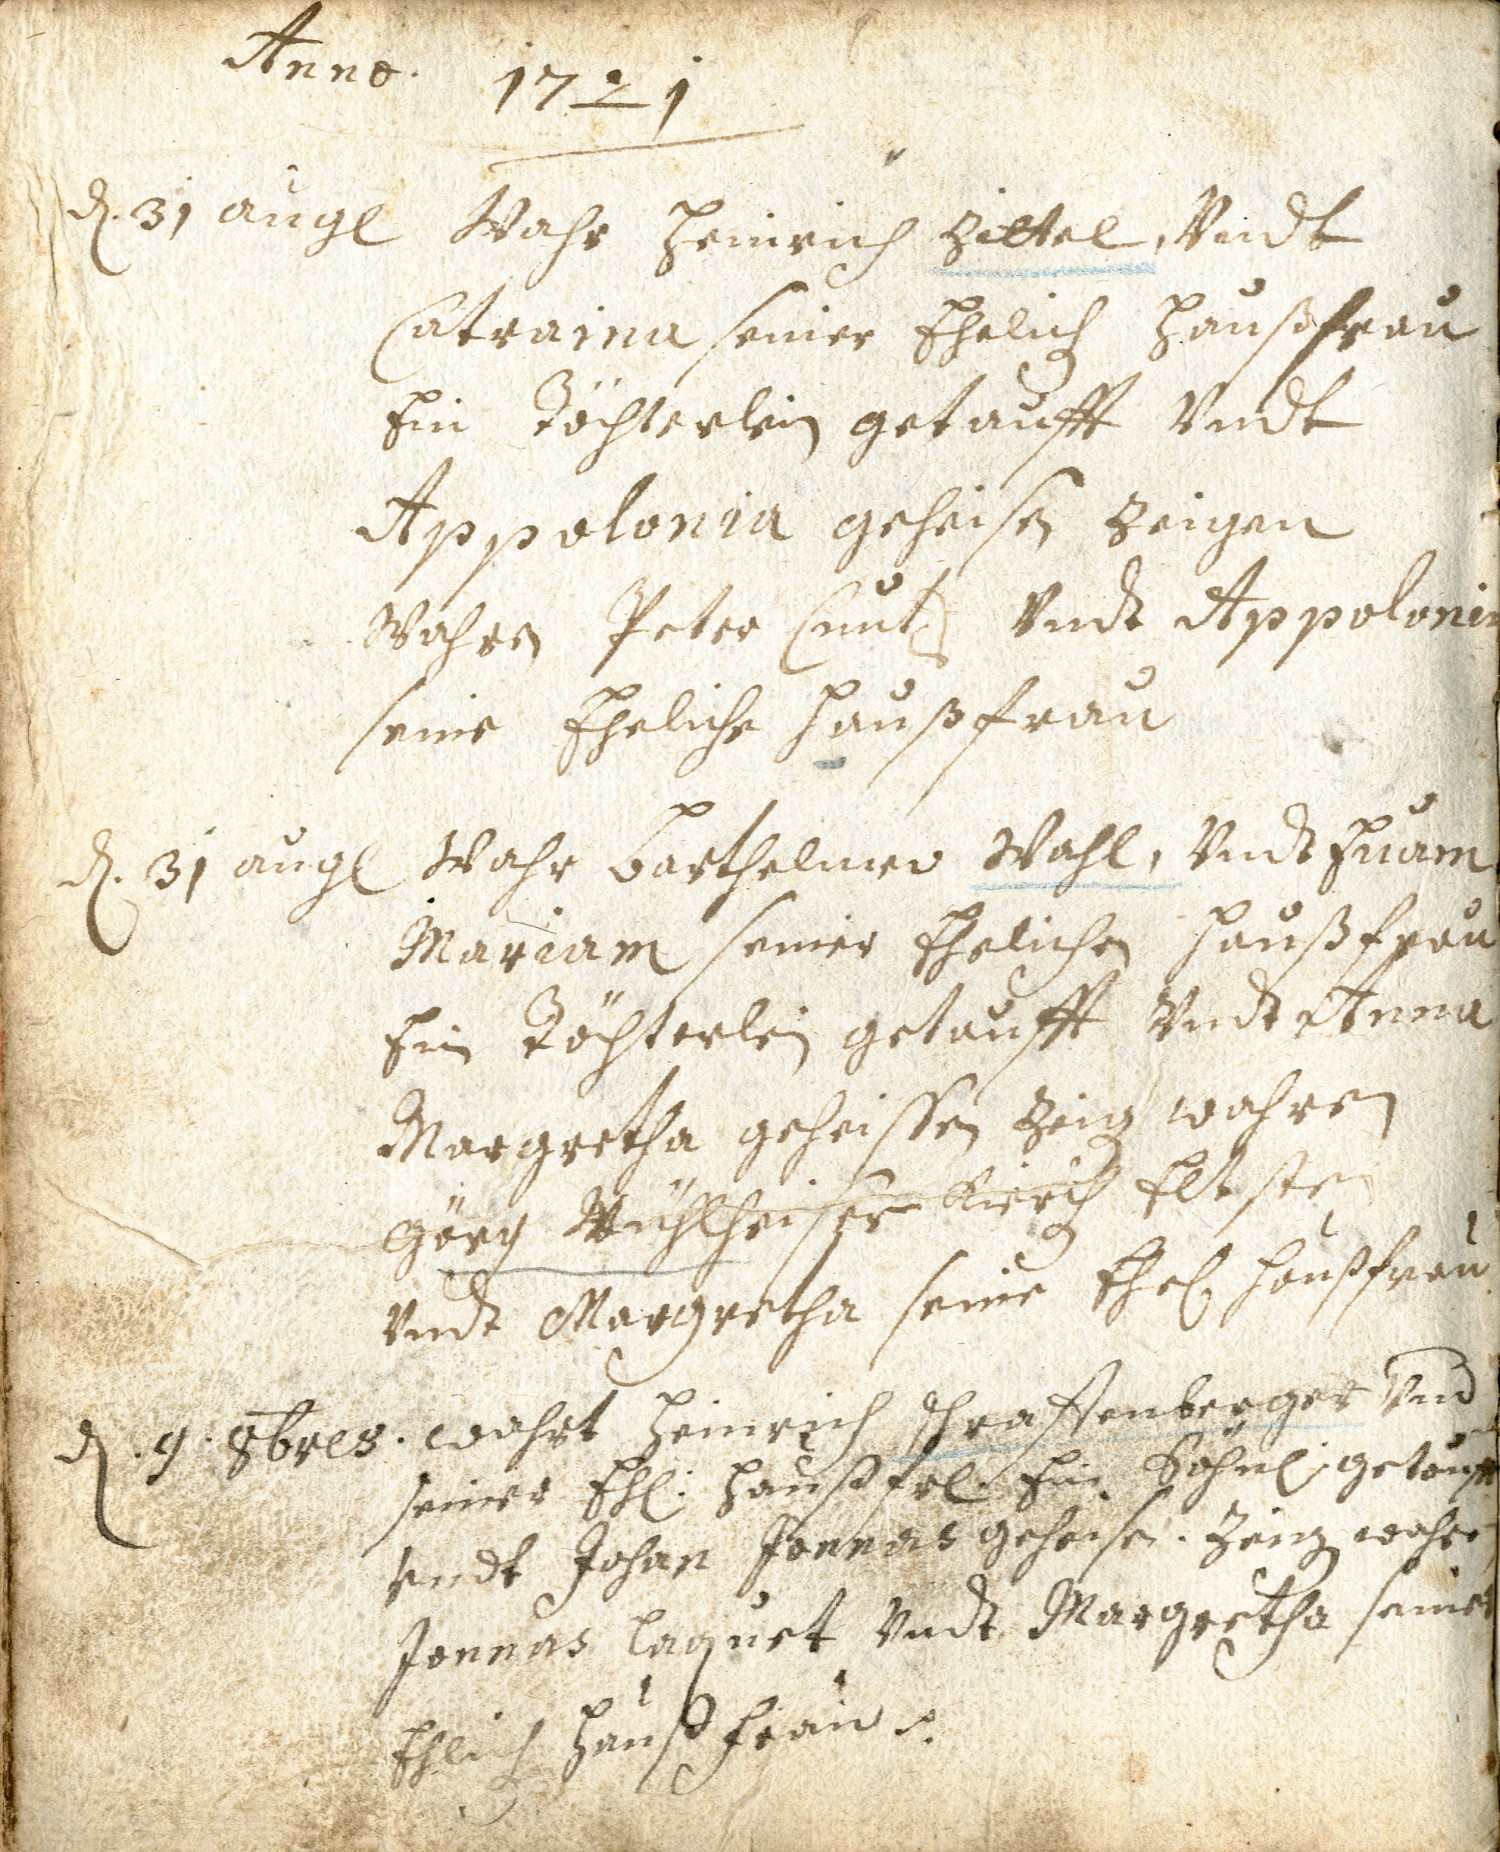 Anno. 1721
d. 31 augl Wahr Heinrich Zittel, Vndt
Catraina seiner Ehelich Haußfrau
Ein Töchterlein getaufft Vndt
Appolonia geheisen Zeigen
Wahren Peter Cuntz Vndt Appolonia
seine Eheliche Haußfrau
d. 31 augl Wahr Barthelmeo Wahl, Vndt Euam
Mariam seiner Ehelichen Haußfrau
Ein Töchterlein getaufft Vndt Anna
Margretha geheissen Zeig wahren
Görg Mühlheiser Kierch Eltesten
Vndt Margretha seine Ehel Haußfrau
d. 9. 8bres. wahrt Heinrich Schraffenberger Vnd
seiner Ehl. Haußfrl. Ein Söhnl. getaufft
Vndt Johan Jonnas geheisen. Zeug wahren
Jonnas Laquet Vndt Margretha seiner
Ehlich Hauß Frau